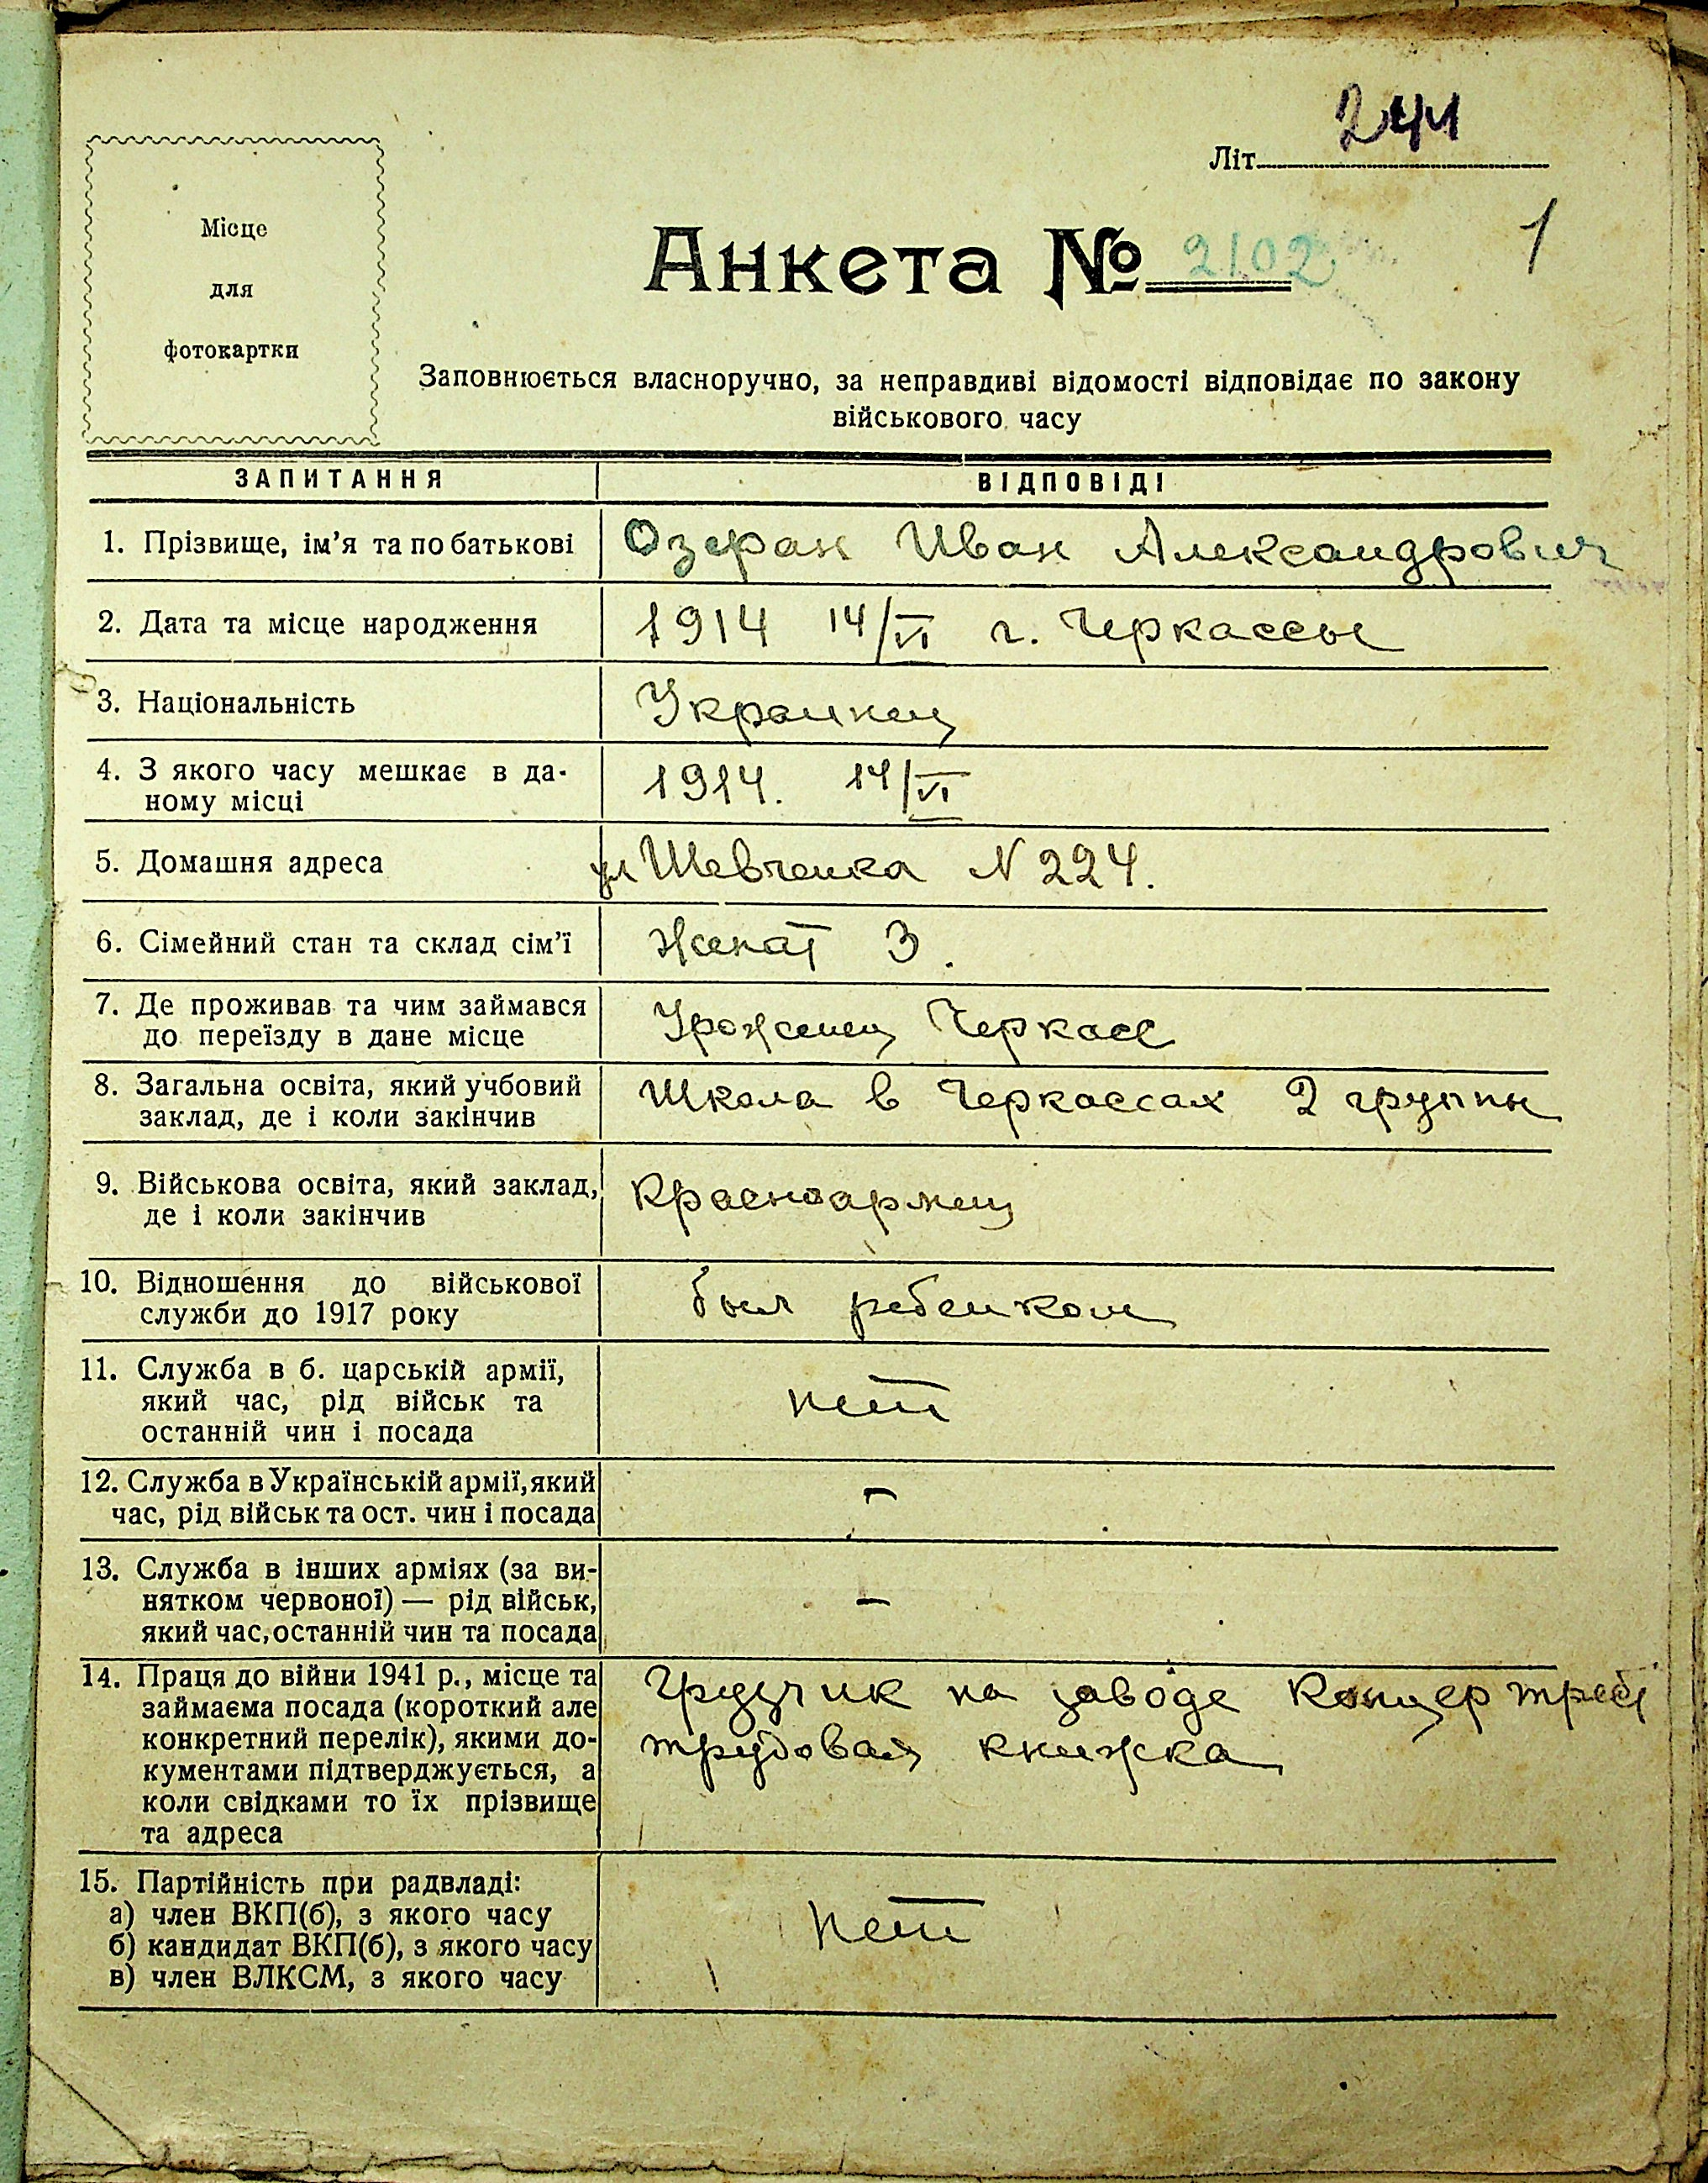 244
Літ
1
Місце
для
фотокартки
Анкета № 2102
Заповнюється власноручно, за неправдиві відомості відповідає по закону
військового часу
ЗАПИТАННЯ ВІДПОВІДІ
1. Прізвище, ім’я та по батькові Озеран Иван Александрович
2. Дата та місце народження 1914 14/VI г. Черкассы
3. Національність Украинец
4. З якого часу мешкає в да-
ному місці 1914. 14/VI
5. Домашня адреса ул Шевченка N 224.
6. Сімейний стан та склад сім’ї Женат 3.
7. Де проживав та чим займався
до переїзду в дане місце Уроженец Черкасс
8. Загальна освіта, який учбовий
заклад, де і коли закінчив Школа в Черкассах 2 группы
9. Військова освіта, який заклад,
де і коли закінчив Красноармец
10. Відношення до військової
служби до 1917 року был ребенком
11. Служба в б. царській армії,
який час, рід військ та
останній чин і посада нет
12. Служба в Українській армії, який
час, рід військ та ост. чин і посада –
13. Служба в інших арміях (за ви-
нятком червоної) — рід військ,
який час, останній чин та посада –
14. Праця до війни 1941 р., місце та Грузчик на заводе Концер
займаєма посада (короткий але
конкретний перелік), якими до- трудовая книжка
кументами підтверджується, а
коли свідками то їх прізвище
та адреса
15. Партійність при радвладі:
а) член ВКП(б), з якого часу нет
б) кандидат ВКП(б), з якого часу
в) член ВЛКСМ, з якого часу